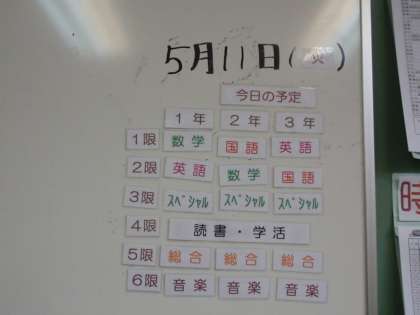 5月11日(火)
今日の予定
1年 2年 3年
1限 数学 国語 英語
2限 英語 数学 国語
3限 スペシャル スペシャル スペシャル
4限 読書・学活
5限 総合 総合 総合
6限 音楽 音楽 音楽
時